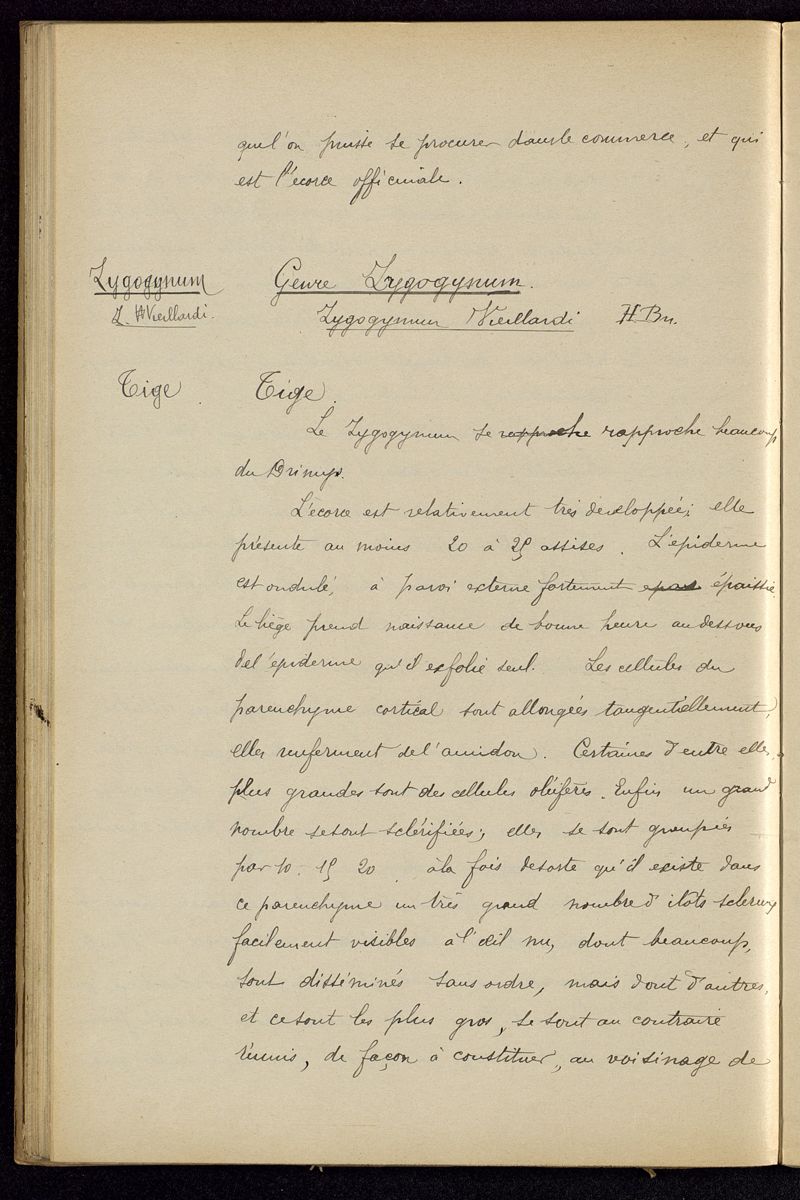 que l'on puisse se procurer dans le commerce, et qui
est l'écorce officinale.
Zygogynum
Z. Vieillardi.
Genre Zygogynum.
Zygogynum Vieillardi H Bn.
Tige
Tige.
Le Zygogynum se rapproche rapproche beaucoup
du Drimys.
L'écorce est relativement très développée; elle
présente au moins 20 à 25 assises. L'épiderme
est ondulé, à paroi externe fortement epais épaissie.
Le liège prend naissance de bonne heure au dessous
de l'épiderme qu'il exfolie seul. Les cellules du
parenchyme cortical sont allongées tangentiellement,
elles renferment de l'amidon. Certaines d'entre elles,
plus grandes sont des cellules oléifères. Enfin un grand
nombre se sont sclérifiées; elles se sont groupées
par 10. 15 20 à la fois de sorte qu'il existe dans
ce parenchyme un très grand nombre d'ilots sclereux
facilement visibles à l'œil nu, dont beaucoup,
sont disséminés sans ordre, mais dont d'autres,
et ce sont les plus gros, se sont au contraire
réunis, de façon à constituer, au voisinage de